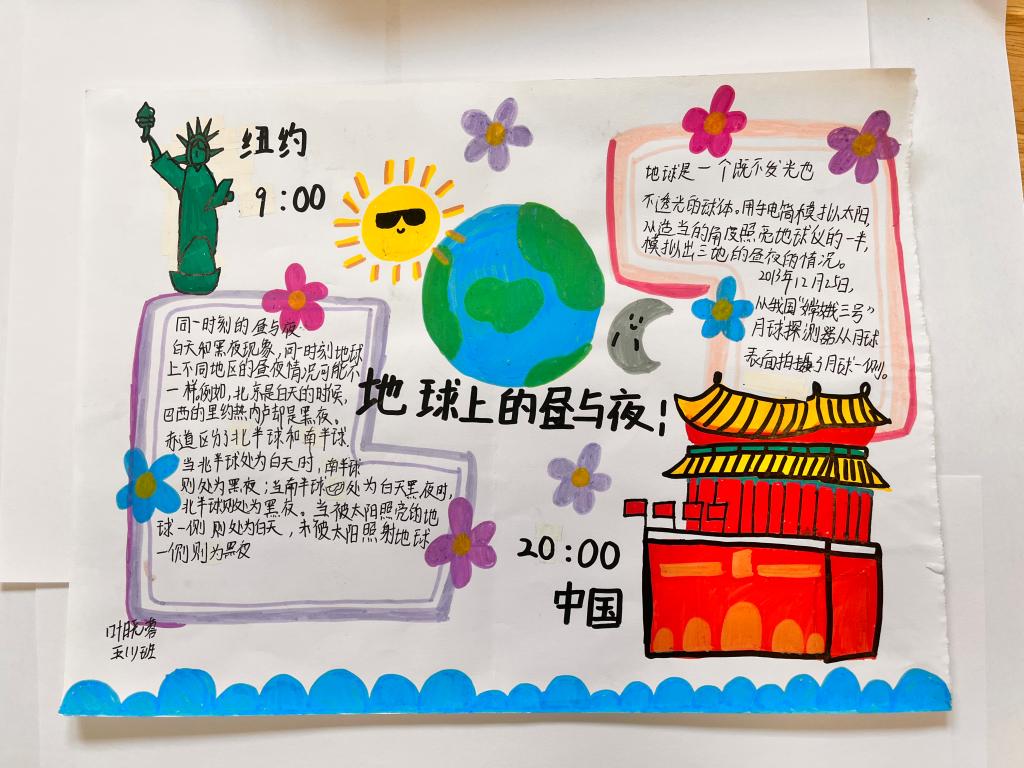 纽约
9:00
地球上的昼与夜!
同一时刻的昼与夜
白天和黑夜现象,同一时刻地球
上不同地区的昼夜情况可能不
一样。例如,北京是白天的时候,
巴西的里约热内卢却是黑夜。
赤道区分了北半球和南半球
当北半球处为白天时,南半球
则处为黑夜;当南半球处为白天黑夜时,
北半球则处为黑夜。当被太阳照亮的地
球一侧则处为白天,未被太阳照射地球
一侧则为黑夜
地球是一个既不发光也
不透光的球体。用手电筒模拟太阳,
从适当的角度照亮地球仪的一半,
模拟出三地的昼夜的情况。
2013年12月25日,
从我国“嫦娥三号”
月球探测器从月球
表面拍摄了月球一侧。
20:00
中国
叶晓
五(1)班